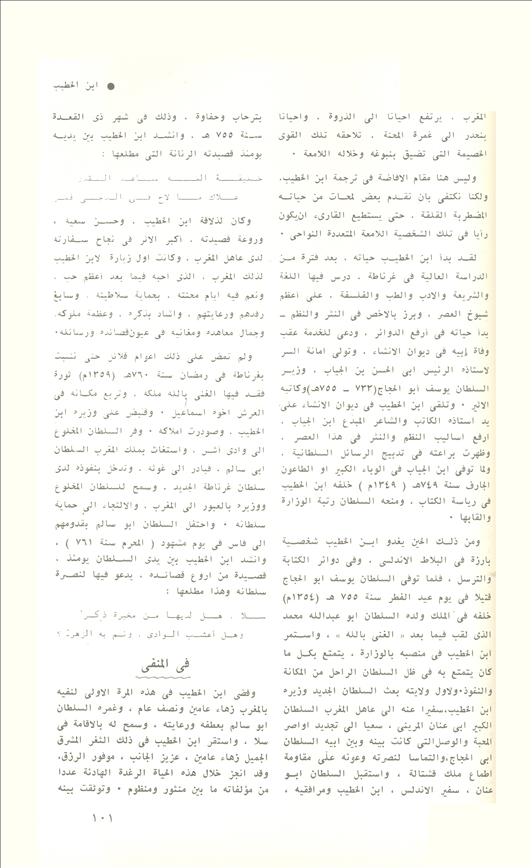 ● ابن الخطيب
المغرب ، يرتفع أحيانا الى الذروة ، وأحيانا
ينحدر الى غمرة المحنة ، تلاحقه تلك القوى
الخصيمة التى تضيق بنبوغه وخلاله اللامعة ٠
وليس هنا مقام الافاضة فى ترجمة ابن الخطيب،
ولكنا نكتفى بان نقدم بعض لمحات من حياته
المضطربة القلقة ، حتى يستطيع القارىء ان يكون
رأيا فى تلك الشخصية اللامعة المتعددة النواحى ٠
لقد بدأ ابن الخطيب حياته ، بعد فترة من
الدراسة العالية فى غرناطة ، درس فيها اللغة
والشريعة والادب والطب والفلسفة ، على أعظم
شيوخ العصر ، وبرز بالاخص فى النثر والنظم ـ
بدأ حياته فى أرفع الدوائر ، ودعى للخدمة عقب
وفاة أبيه فى ديوان الانشاء ، وتولى امانة السر
لاستاذه الرئيس أبى الحسن بن الجياب ، وزير
السلطان يوسف أبو الحجاج(٧٣٣ ـ ٧٥٥هـ)وكاتبه
الاثير ٠ وتلقى ابن الخطيب فى ديوان الانشاء على
يد استاذه الكاتب والشاعر المبدع ابن الجياب ،
أرفع أساليب النظم والنثر فى هذا العصر ،
وظهرت براعته فى تدبيج الرسائل السلطانية ،
ولما توفى ابن الجياب فى الوباء الكبير أو الطاعون
الجارف سنة ٧٤٩هـ ( ١٣٤٩م ) خلفه ابن الخطيب
فى رياسة الكتاب ، ومنحه السلطان رتبة الوزارة
والقابها ٠
ومن ذلك الحين يغدو ابن الخطيب شخصية
بارزة فى البلاط الاندلسى ، وفى دوائر الكتابة
والترسل ، فلما توفى السلطان يوسف أبو الحجاج
قتيلا فى يوم عيد الفطر سنة ٧٥٥ هـ (١٣٥٤م)
خلفه فى الملك ولده السلطان أبو عبدالله محمد
الذى لقب فيما بعد « الغنى بالله » ، واستمر
ابن الخطيب فى منصبه بالوزارة ، يتمتع بكل ما
كان يتمتع به فى ظل السلطان الراحل من المكانة
والنفوذ٠ولاول ولايته بعث السلطان الجديد وزيره
ابن الخطيب،سفيرا عنه الى عاهل المغرب السلطان
الكبير أبى عنان المرينى ، سعيا الى تجديد أواصر
المحبة والوصل،التى كانت بينه وبين أبيه السلطان
أبى الحجاج،والتماسا لنصرته وعونه على مقاومة
أطماع ملك قشتالة ، واستقبل السلطان أبو
عنان ، سفير الاندلس ، ابن الخطيب ومرافقيه ،
بترحاب وحفاوة ، وذلك فى شهر ذى القعدة
سنة ٧٥٥ هـ ، وأنشد ابن الخطيب بين يديه
يومئذ قصيدته الرنانة التى مطلعها :
خليفة الله ساعد القدر
علاك ما لاح فى الدجى قمر
وكان لذلاقة ابن الخطيب ، وحسن سعيه ،
وروعة قصيدته ، أكبر الاثر فى نجاح سفارته
لدى عاهل المغرب ، وكانت أول زيارة لابن الخطيب
لذلك المغرب ، الذى أحبه فيما بعد أعظم حب ،
ونعم فيه أيام محنته ، بحماية سلاطينه ، وسابغ
رفدهم ورعايتهم ، وأشاد بذكره ، وعظمة ملوكه،
وجمال معاهده ومغانيه فى عيون قصائده ورسائله٠
ولم تمض على ذلك أعوام قلائل حتى نشبت
بغرناطة فى رمضان سنة ٧٦٠هـ (١٣٥٩م) ثورة
فقد فيها الغنى بالله ملكه ، وتربع مكانه فى
العرش أخوه اسماعيل ٠ وقبض على وزيره ابن
الخطيب ، وصودرت أملاكه ٠ وفر السلطان المخلوع
الى وادى آش ، واستغاث بملك المغرب السلطان
أبى سالم ، فبادر الى غوثه ، وتدخل بنفوذه لدى
سلطان غرناطة الجديد ، وسمح للسلطان المخلوع
ووزيره بالعبور الى المغرب ، والالتجاء الى حماية
سلطانه ٠ واحتفل السلطان أبو سالم بقدومهم
الى فاس فى يوم مشهود ( المحرم سنة ٧٦١ ) ،
وأنشد ابن الخطيب بين يدى السلطان يومئذ ،
قصيدة من أروع قصائده ، يدعو فيها لنصرة
سلطانه وهذا مطلعها :
سلا ، هل لديها من مخبرة ذكر
وهل أعشب الوادى ، ونم به الزهر ؟
فى المنفى
وقضى ابن الخطيب فى هذه المرة الاولى لنفيه
بالمغرب زهاء عامين ونصف عام ، وغمره السلطان
أبو سالم بعطفه ورعايته ، وسمح له بالاقامة فى
سلا ، واستقر ابن الخطيب فى ذلك الثغر المشرق
الجميل زهاء عامين ، عزيز الجانب ، موفور الرزق،
وقد أنجز خلال هذه الحياة الرغدة الهادئة عددا
من مؤلفاته ما بين منثور ومنظوم ٠ وتوثقت بينه
١٠١